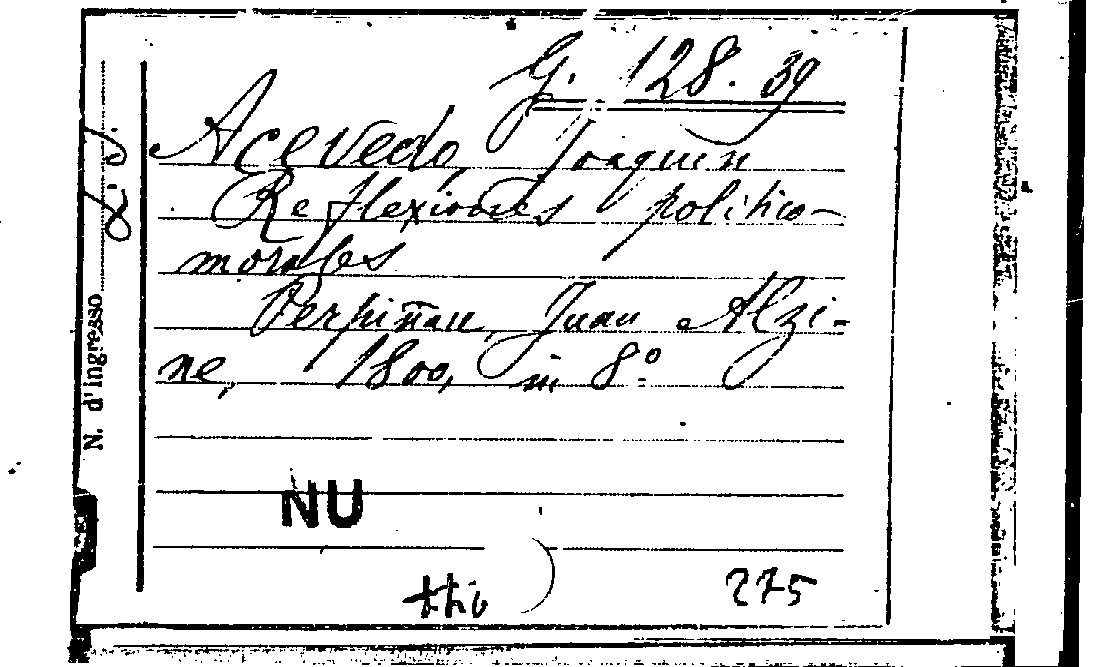 G. 128. 39
Acevedo, Joaquin
Reflexiones politico-
morales
Perpiñan, Juan Alzi-
ne, 1800, in 8.º
N. d'ingresso
NU
275